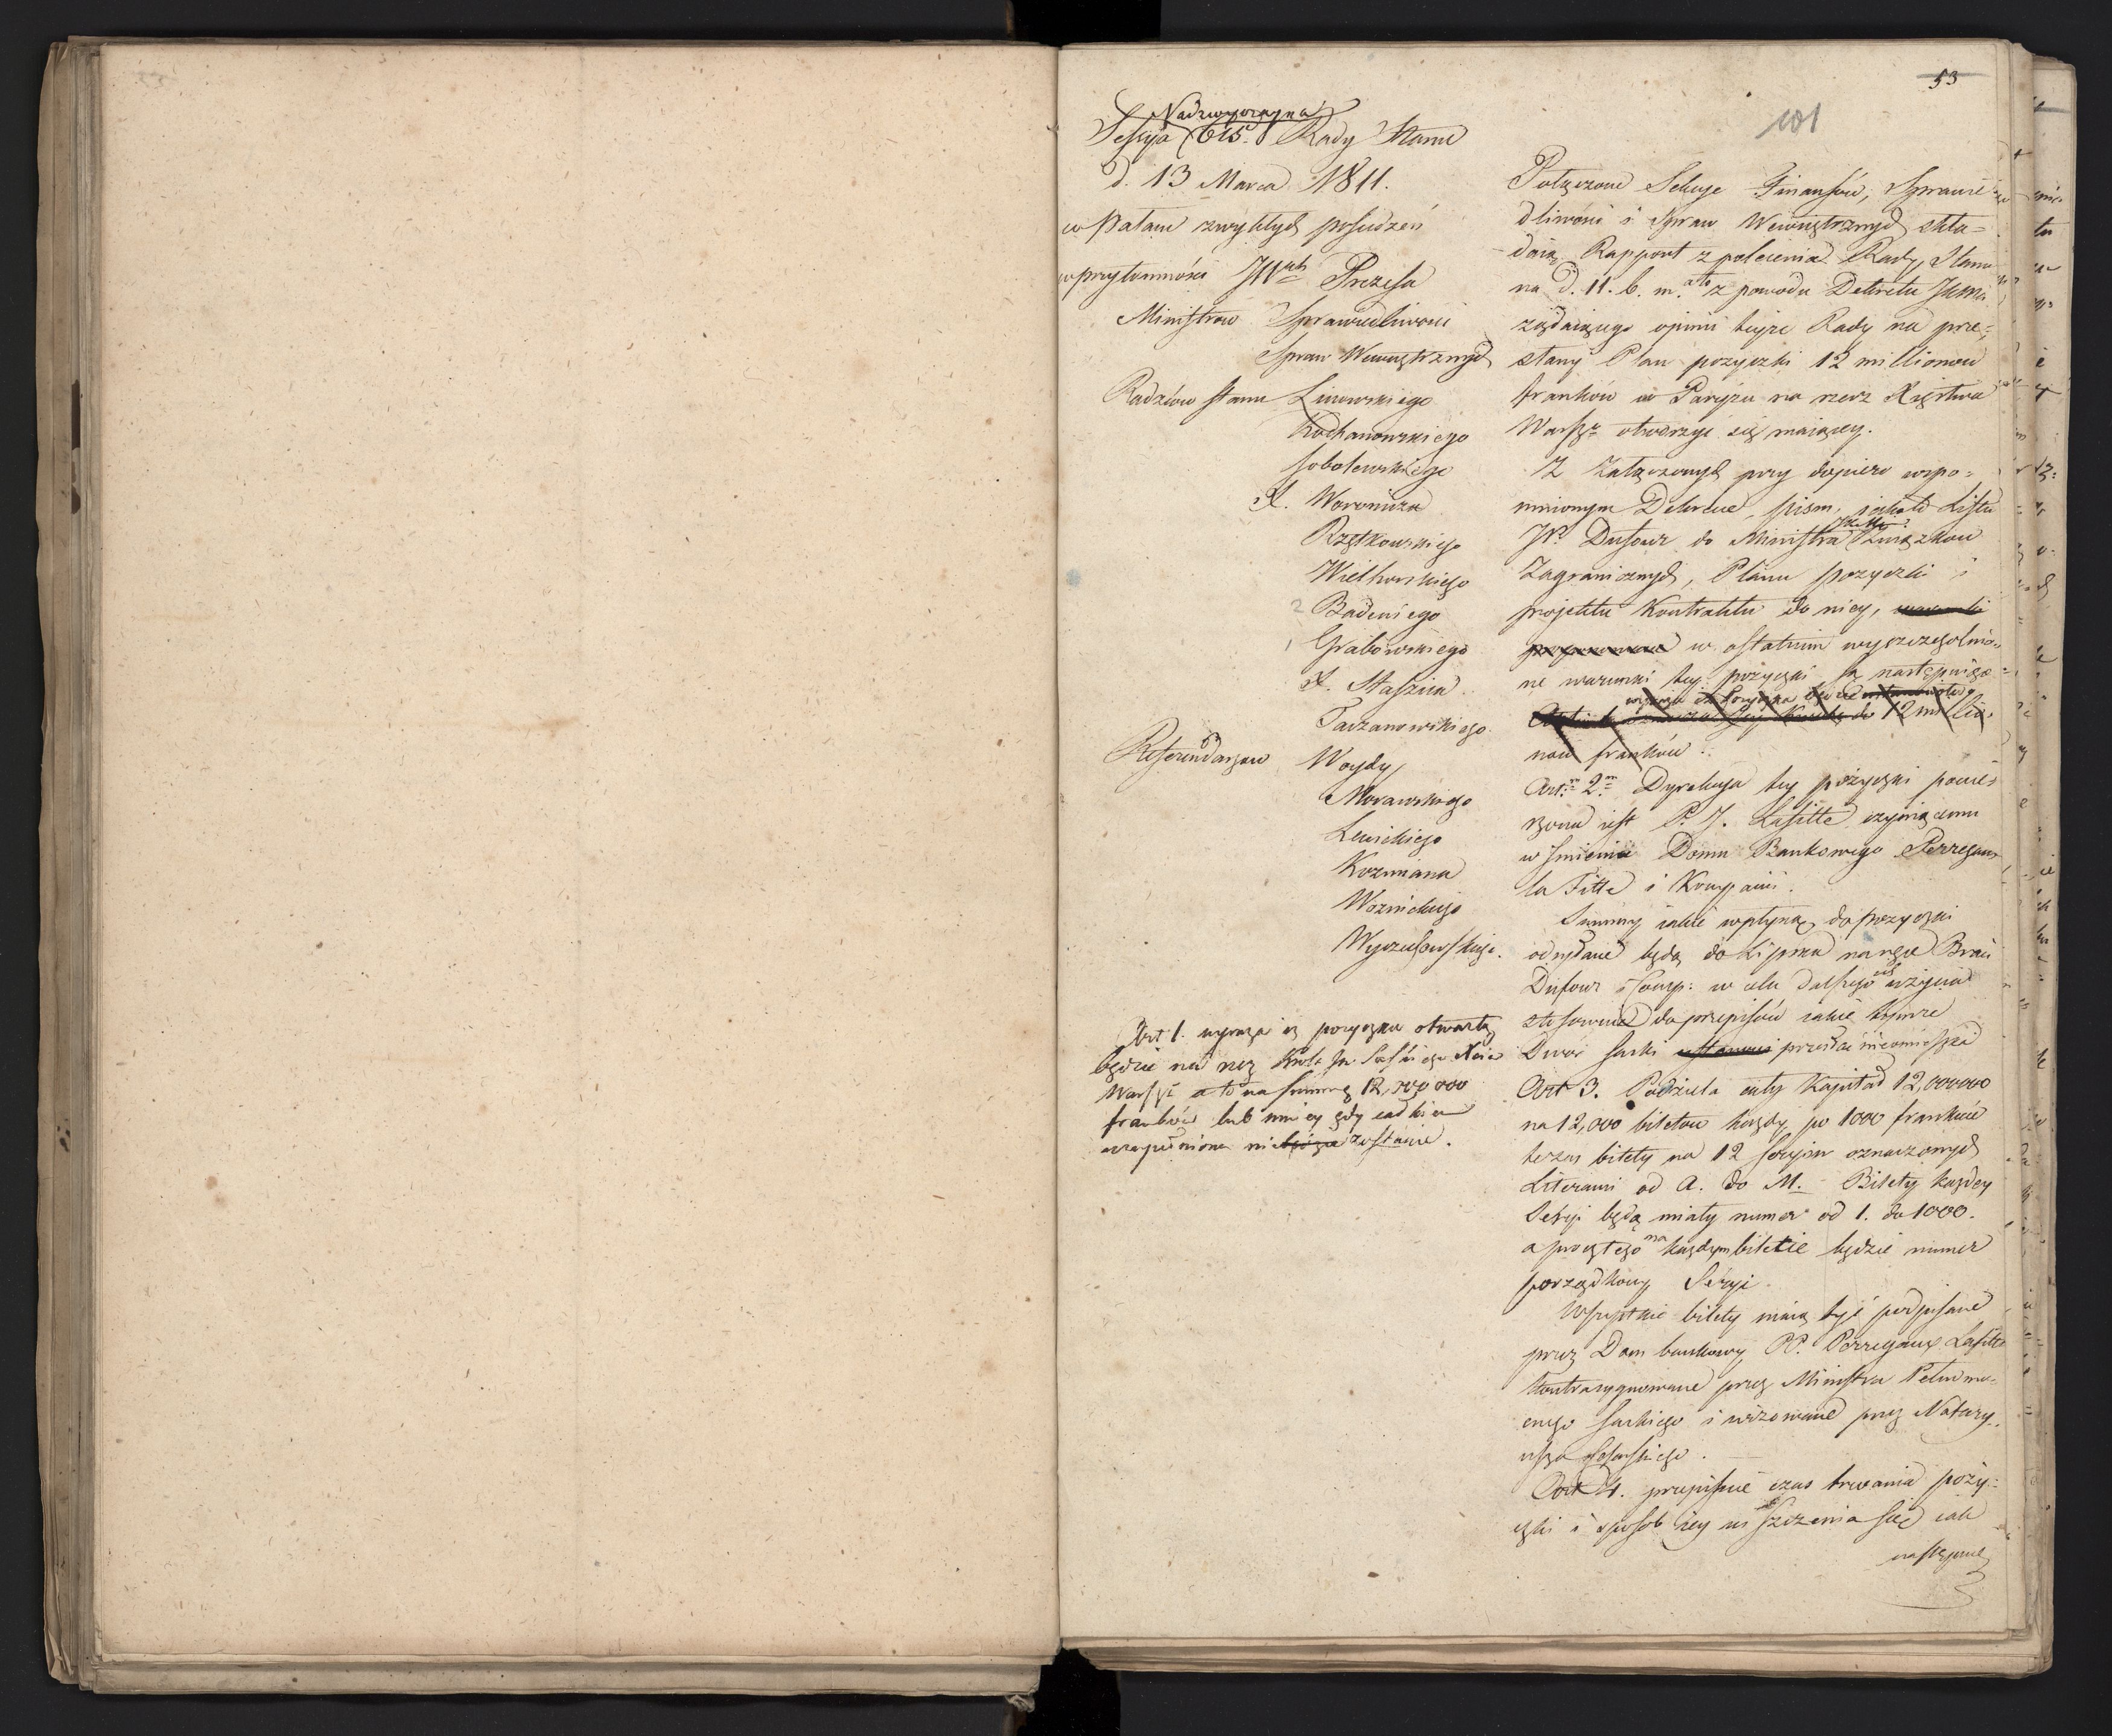 53
101
Nadzwyczayna
Sessya 615. Rady Stanu
d. 13 Marca 1811.
w Pałacu zwykłych posiedzeń
w przytomności JW Prezesa
Ministrów Sprawiedliwości
Spraw Wewnętrznych
Radzców Stanu Linowskiego
Kochanowskiego
Sobolewskiego
X. Woronicza
Rzętkowskiego
Wielhorskiego
2 Badeniego
1 Grabowskiego
X. Staszica
Tarzanowskiego
Referendarzów Woydy
Morawskiego
Lewickiego
Kozmiana
Woznickiego
Wyczechowskiego.
Art 1. wyraża iż pożyczka otwartą
będzie na rzecz Króla Jm. Saskiego Xcia
Warsz. a to na summę 12,000,000
franków lub mniey gdy całkiem
uzupełniona nie będzie zostanie.
Połączone Sekcye Finansów, Sprawie=
dliwości i Spraw Wewnętrznych skła=
daią Rapport z polecenia Rady Stanu
na d. 11. b. m. a to z powodu Dekretu JKMci
żądaiącego opinii teyże Rady na prze=
słany Plan pożyczki 12 millionów
franków w Paryżu na rzecz Xięstwa
Warsz. otworzyć się maiącey.
Z załączonych przy dopiero wspo=
mnionym Dekrecie pism, iakoto Listu
JP. Dufour do Ministra Związków
Zagranicznych, Planu pożyczki i
projektu Kontraktu do niey, warunki
proponowane w ostatnim wyszczególnio=
ne warunki tey pożyczki są następuiące
12 millio=
nów franków.
Art. 2. Dyrekcya tey pożyczki powie=
rzona iest P. J. Lafitte czyniącemu
w Imieniu Domu Bankowego Perregaux
la Fitte i Kompanii.
Summy iakie wpłyną do pożyczki
odsyłane będą do Lipska na ręce Braci
Dufour i Comp: w celu dalszego ich użycia
stosownie do przepisów iakie tymże
Dwór Saski ustanowi przesłać nieomieszka
Art 3. Podziela cały Kapitał 12,000000
na 12,000 biletów każdy po 1000 franków
tezaś bilety na 12 Seryiów oznaczonych
Literami od A. do M. Bilety każdey
Seryi będą miały numer od 1. do 1000.
a procz tego na każdym bilecie będzie numer
porządkowy Seryi.
Wszystkie bilety maią być podpisane
przez Dom bankowy PP. Perregaux Lafitte
kontrasygnowane przez Ministra Pełnomo=
cnego Saskiego i wizowane przez Notary=
usza Cesarskiego.
Art 4. przepisuie czas trwania poży=
czki i sposob iey uiszczenia się iak
następuie